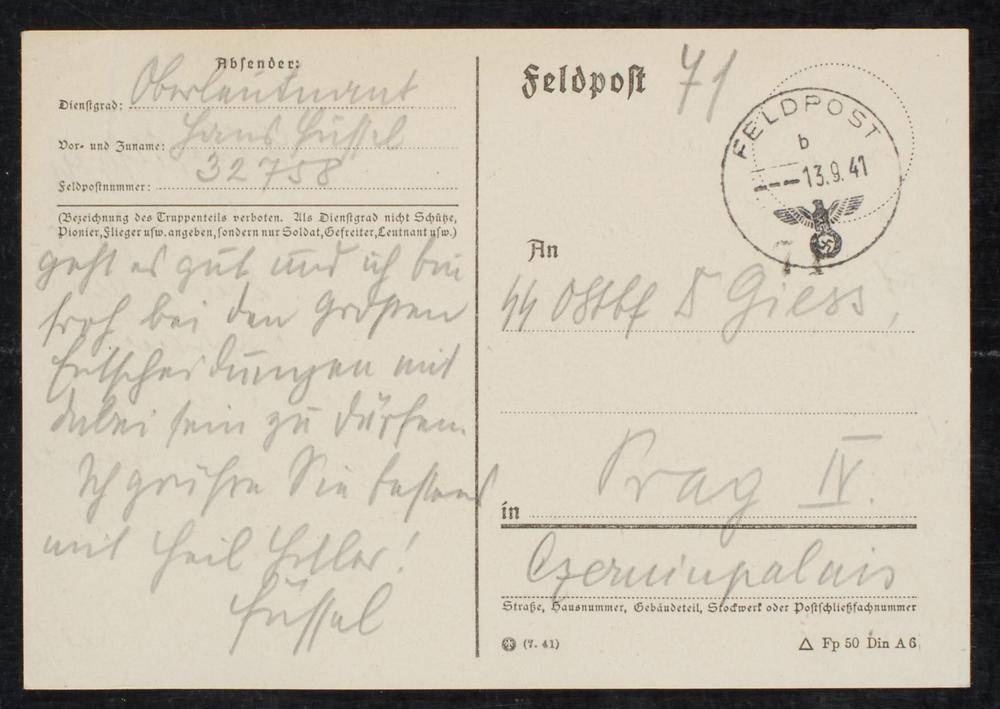 Absender:
Dienstgrad: Oberleutnant
Vor- und Zuname: Hans Füssel
Feldpostnummer: 32758
(Bezeichnung des Truppenteils verboten. Als Dienstgrad nicht Schütze,
Pionier, Flieger usw. angeben, sondern nur Soldat, Gefreiter, Leutnant usw.)
geht es gut und ich bin
froh bei den größten
Entscheidungen mit
dabei sein zu dürfen.
Ich grüße Sie bestens
mit Heil Hitler!
Füssel
Feldpost 71
FELDPOST
b
---13.9.41
71
An
SS Ostbf Giess,
in Prag IV.
Czerninpalais
Straße, Hausnummer, Gebäudeteil, Stockwerk oder Postschließfachnummer
(7. 41)
Fp 50 Din A 6